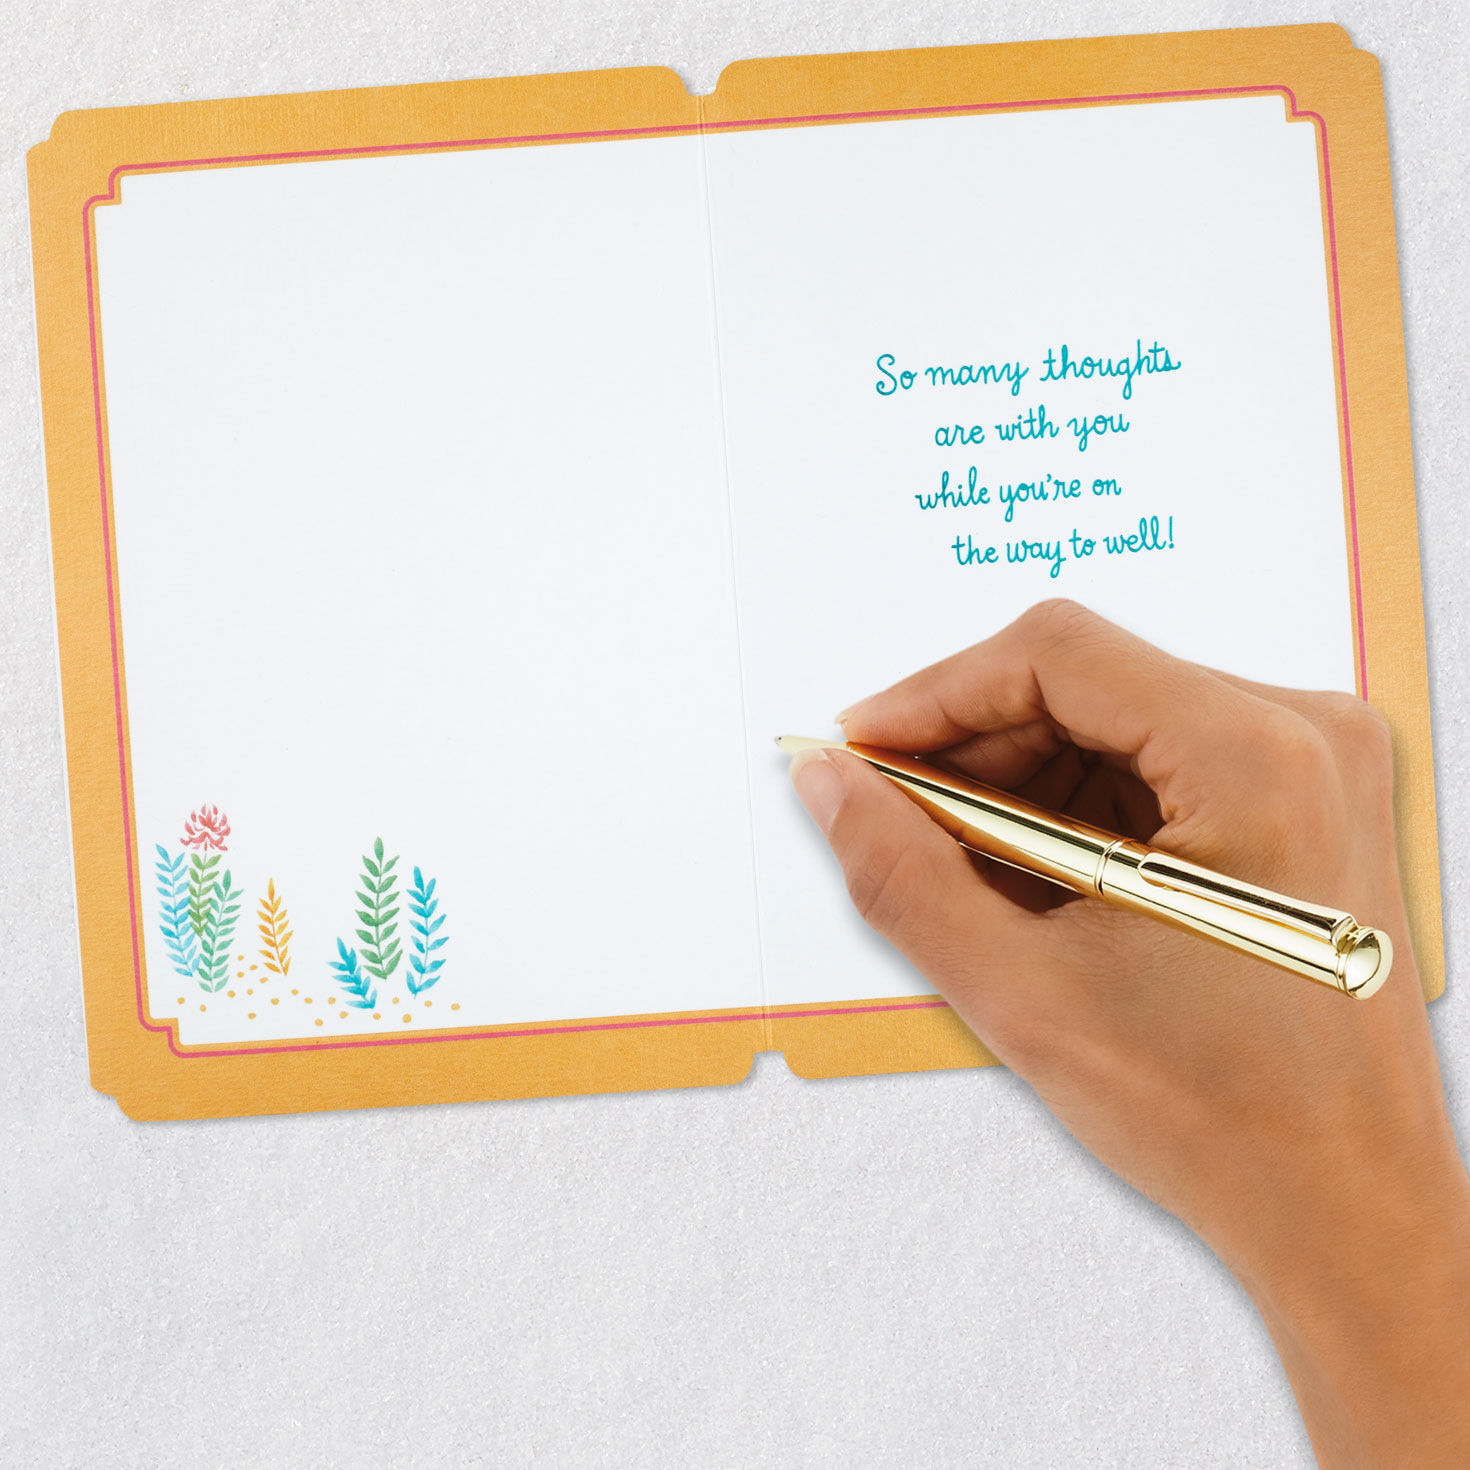 So many thoughts
are with you
while you're on
the way to well!